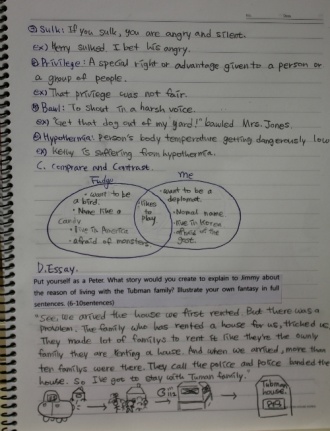 ⑤ Sulk: If you sulk, you are angry and silent.
ex) Henry sulked. I bet his angry.
⑥ Privilege: A special right or advantage given to a person or
a group of people.
ex) That privilege was not fair.
⑦ Bawl: To shout in a harsh voice.
ex) "Get that dog out of my yard!" bawled Mrs. Jones.
⑧ Hypothermia: person's body temperature getting dangerously low
ex) Kathy is suffering from hypothermia.
C. Compare and Contrast.
Fudge
me
• want to be
a bird.
• Name like a
candy
• live in America
• afraid of monsters
• likes
to
play
• want to be a
diplomat.
• Normal name
• live in Korea
afraid of the
D. Essay.
Put yourself as a Peter. What story would you create to explain to Jimmy about
the reason of living with the Tubman family? Illustrate your own fantasy in full
sentences. (6-10sentences)
"See, we arrived the house we first rented. But there was a
problem. The family who has rented a house for us, tricked us.
They made lot of familys to rent so like they're the only
family they are renting a house. And when we arrived, more than
ten familys were there. They call the police and police landed the
house. So I've got to stay with Tuman family."
Tubman
house.